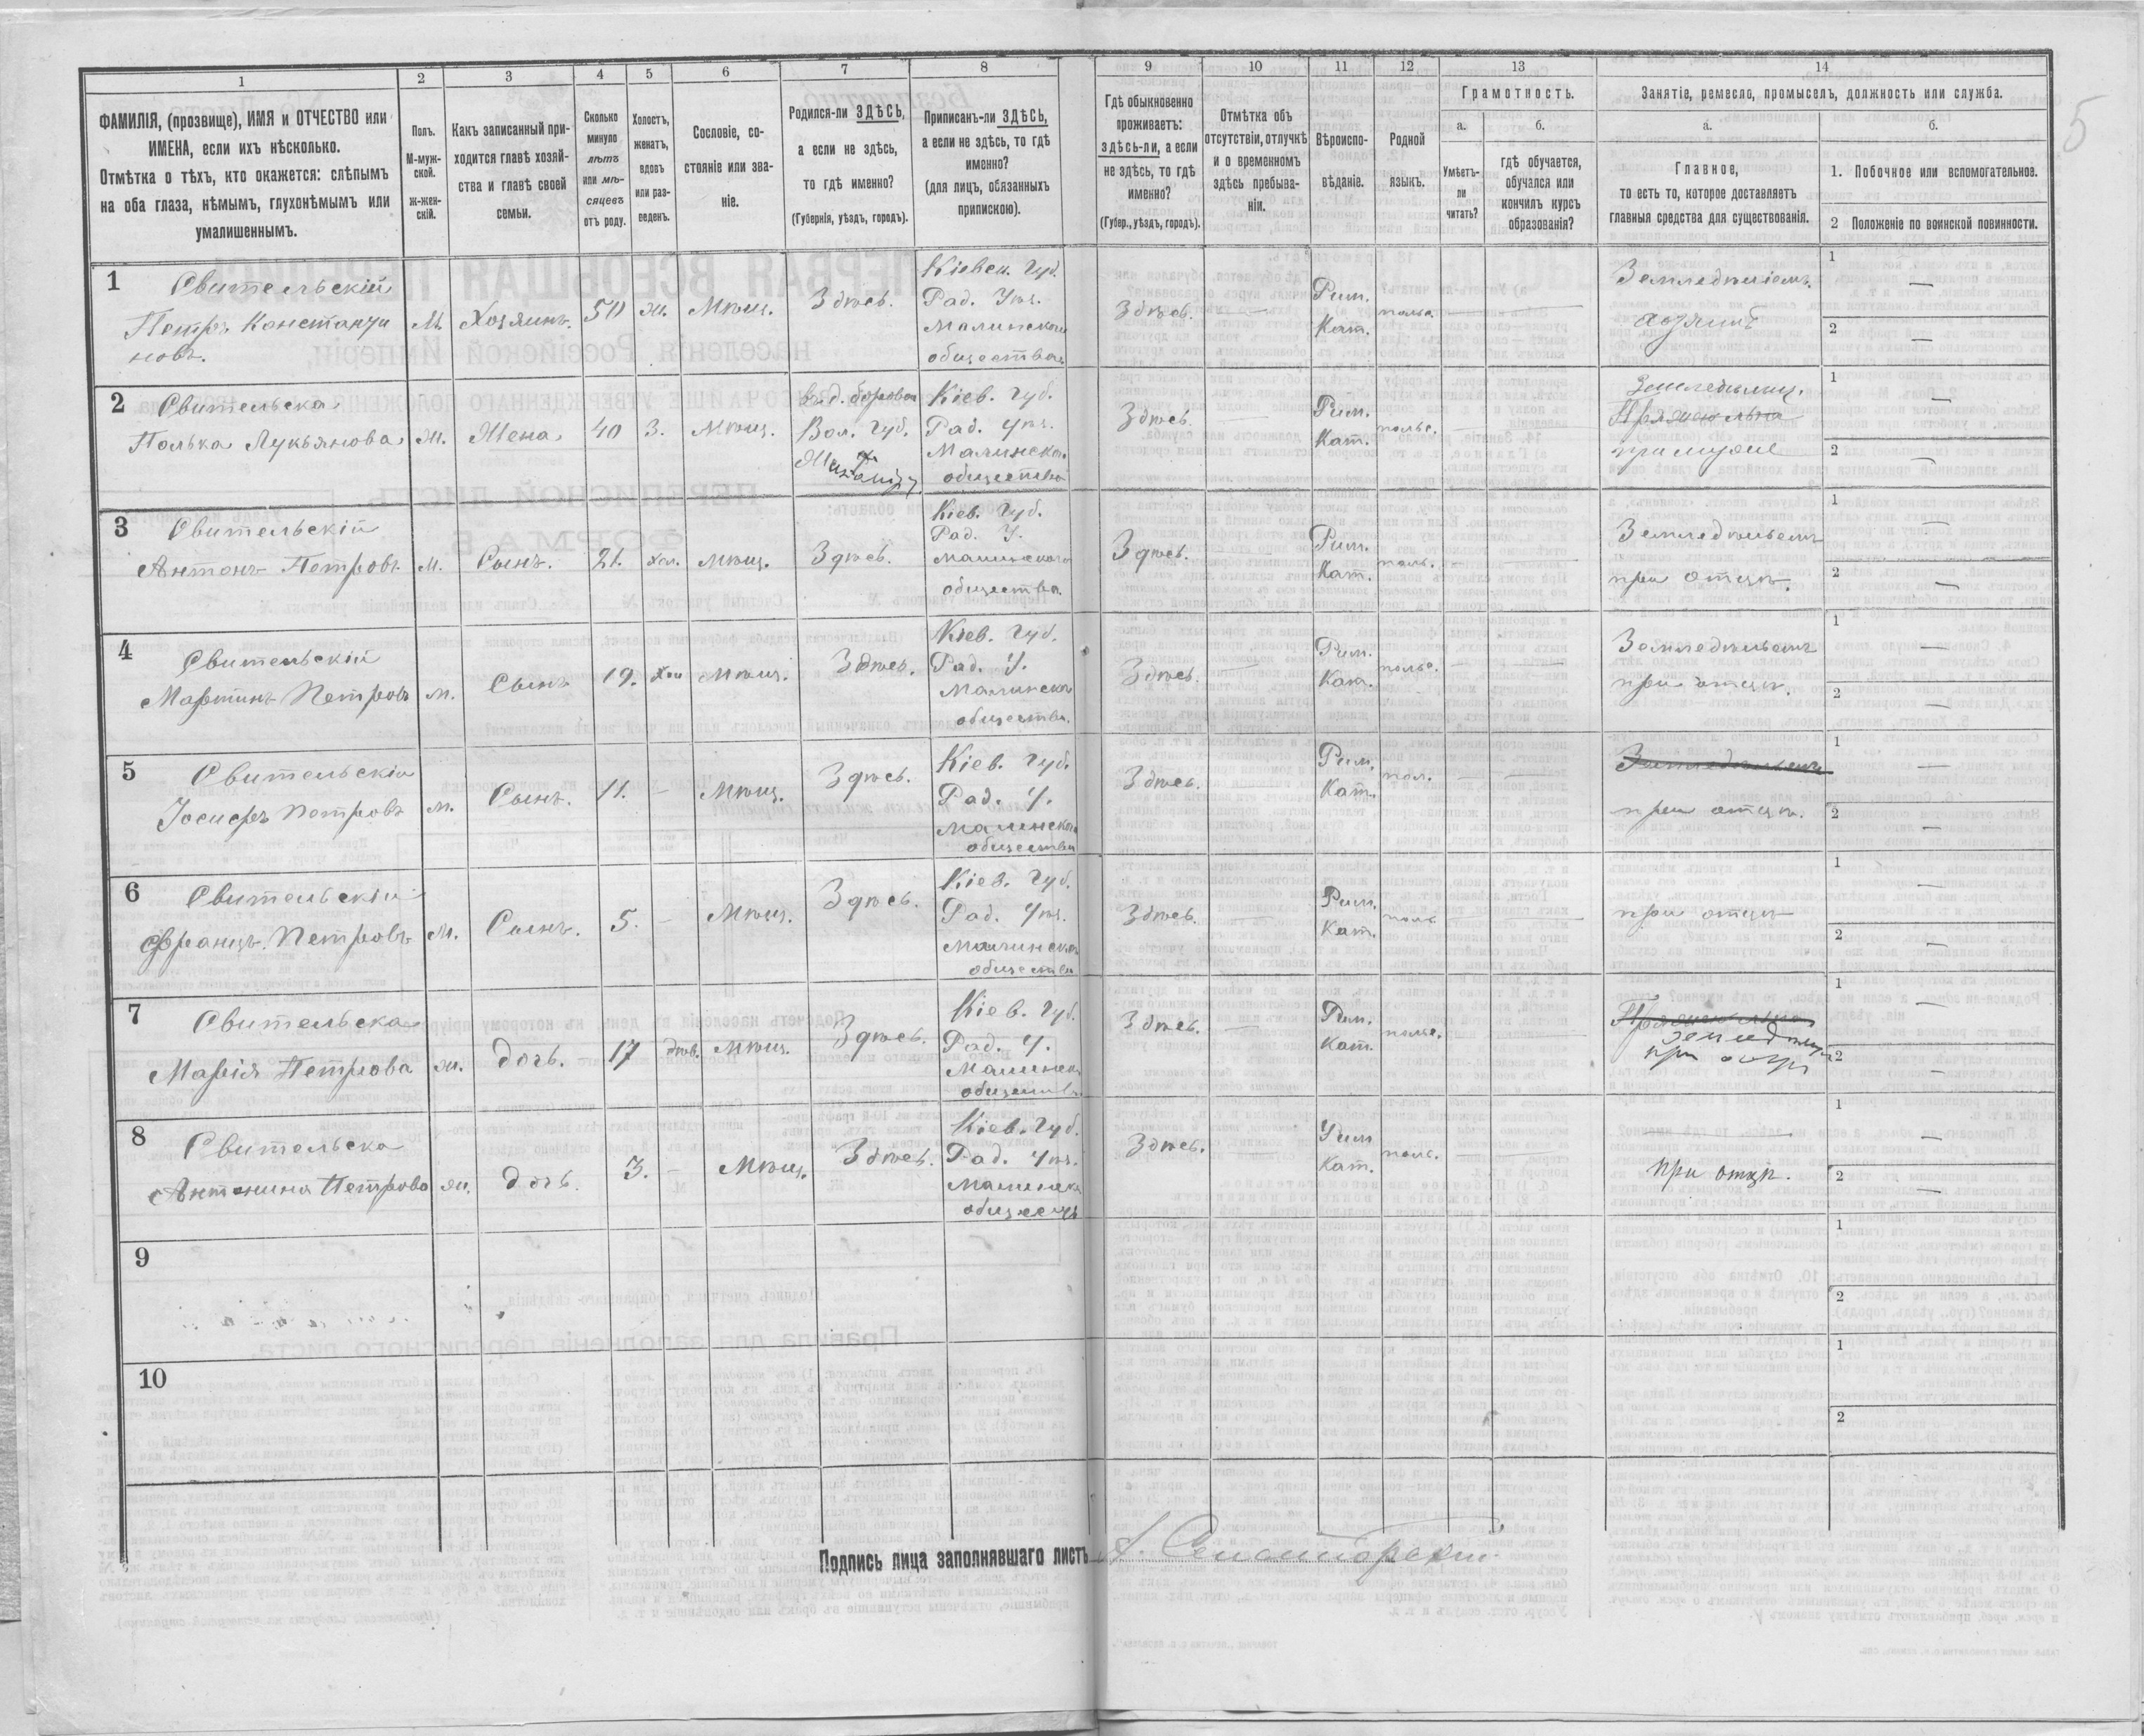 1
2
3
4
5
6
7
8
9
10
11
12
13
14
ФАМИЛІЯ, (прозвище), ИМЯ и ОТЧЕСТВО или
ИМЕНА, если ихъ нѣсколько.
Отмѣтка о тѣхъ, кто окажется: слѣпымъ
на оба глаза, нѣмымъ, глухонѣмымъ или
умалишеннымъ.
Полъ.
М-муж-
ской.
ж-жен-
скій.
Какъ записанный при-
ходится главѣ хозяй-
ства и главѣ своей
семьи.
Сколько
минуло
лѣтъ
или мѣ-
сяцевъ
отъ роду.
Холостъ,
женатъ,
вдовъ
или раз-
веденъ.
Сословіе, со-
стояніе или зва-
ніе.
Родился-ли ЗДѢСЬ,
а если не здѣсь,
то гдѣ именно?
(Губернія, уѣздъ, городъ).
Приписанъ-ли ЗДѢСЬ,
а если не здѣсь, то гдѣ
именно?
(для лицъ, обязанныхъ
припискою).
Гдѣ обыкновенно
проживаетъ:
здѣсь-ли, а если
не здѣсь, то гдѣ
именно?
(Губер., уѣздъ, городъ).
Отмѣтка объ
отсутствіи, отлучкѣ
и о временномъ
здѣсь пребыва-
ніи.
Вѣроиспо-
вѣданіе.
Родной
языкъ.
Грамотность.
а.
Умѣетъ-
ли
читать?
б.
гдѣ обучается,
обучался или
кончилъ курсъ
образованія?
Занятіе, ремесло, промыселъ, должность или служба.
а.
Главное,
то есть то, которое доставляетъ
главныя средства для существованія.
б.
1. Побочное или вспомогательное.
2 Положеніе по воинской повинности.
5
1
Свительскій
Петръ Константи
новъ.
М.
Хозяинъ.
50
ж.
Мѣщ.
Здѣсь.
Кіевск. Губ.
Рад. Уѣз.
Малинскаго
общества
Здѣсь.
—
Рим.
Кат.
польс.
— —
Земледѣліемъ.
хозяинъ
1 —
2 —
2
Свительска
Полька Лукьянова
ж.
Жена
40
З.
Мѣщ.
Вол. Губ.
Кіев. Губ.
Рад. Уѣз.
Малинска
общества
Здѣсь.
—
Рим.
Кат.
польс.
— —
при мужѣ
1 —
2 —
3
Свительскій
Антонъ Петровъ
м.
Сынъ.
21.
хол.
мѣщ.
Здѣсь.
Кіев. Губ.
Рад. У.
Малинскаго
общества.
Здѣсь.
Рим.
Кат.
поль.
— —
Земледѣльемъ
при отцѣ.
1 —
2 —
4
Свительскій
Мартинъ Петровъ
м.
Сынъ
19.
Хол
мѣщ.
Здѣсь.
Кіев. Губ.
Рад. У.
Малинска
общества.
Здѣсь.
—
Рим.
Кат.
польс.
— —
Земледѣльемъ
при отцѣ.
1 —
2 —
5
Свительскій
Іосифъ Петровъ
м.
Сынъ.
11.
—
Мѣщ.
Здѣсь.
Кіев. Губ.
Рад. У.
Малинскаго
общества
Здѣсь.
Рим.
Кат.
пол.
— —
Земледѣльемъ
при отцѣ.
1 —
2 —
6
Свительскій
Францъ Петровъ
м.
Сынъ.
5.
—
Мѣщ.
Здѣсь.
Кіев. Губ.
Рад. Уѣз.
Малинска
общества
Здѣсь.
—
Рим.
Кат.
поль
— —
при отцѣ
1 —
2 —
7
Свительска
Марія Петрова
ж.
дочь.
17
дѣв.
мѣщ.
Здѣсь.
Кіев. Губ.
Рад. У.
Малинска
общества
Здѣсь.
—
Рим.
Кат.
польс.
— —
при отцѣ
1 —
2 —
8
Свительска
Антонина Петрова
ж.
дочь
3.
—
Мѣщ.
Здѣсь.
Кіев. Губ.
Рад. Уѣз.
Малинска
общества
Здѣсь.
Рим
Кат.
польс.
— —
при отцѣ.
1 —
2 —
9
1
2
10
1
2
Подпись лица заполнявшаго листъ